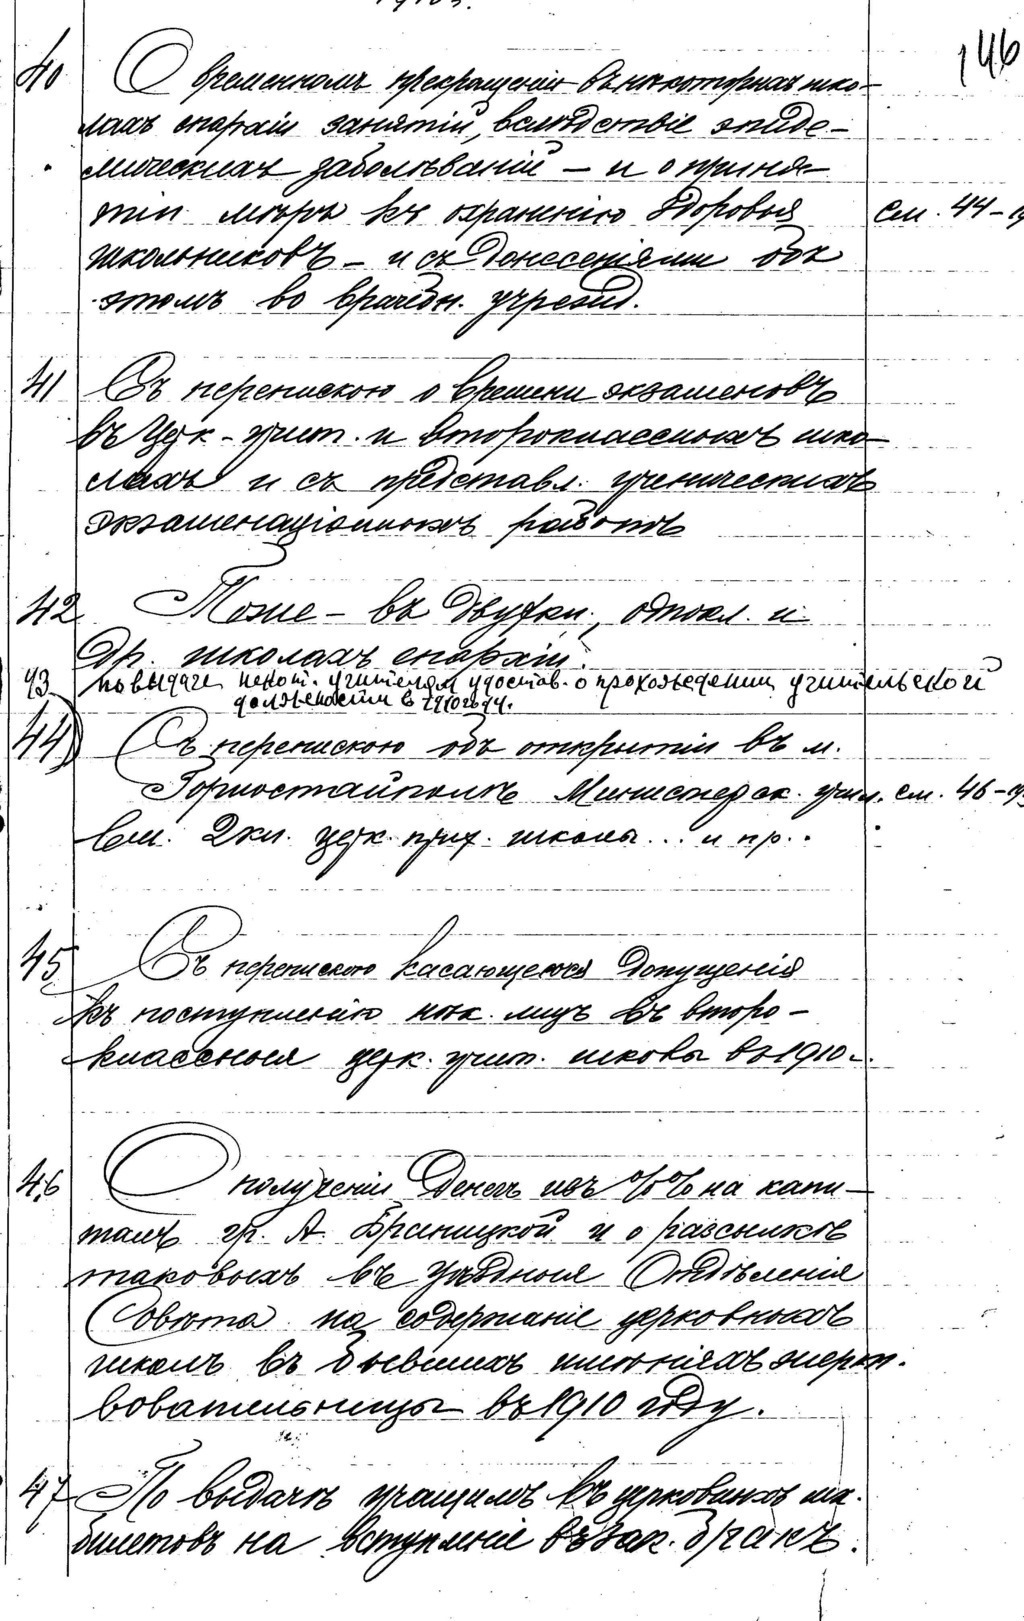 1910 г.
146
40 О временномъ прекращеніи въ нѣкоторыхъ шко-
лахъ епархіи занятій, вслѣдствіе эпиде-
мическихъ заболѣваній – и о приня-
тіи мѣръ къ охраненію здоровья см. 44-
школьниковъ – и съ донесеніями объ
этомъ во врачебн. учрежд.
41 Съ перепискою о времени экзаменовъ
въ церк.-учит. и второклассныхъ шко-
лахъ и съ представл. ученическихъ
экзаменаціонныхъ работъ
42 Тоже – въ двухкл., однокл. и
др. школахъ епархіи.
43. по выдаче некот. учителям удостов. о прохождении учительской
должности в 1910 году.
44 Съ перепискою объ открытіи въ м.
Горностайполѣ Министерск. учил. см. 46-
вм. 2кл. церк. прих. школы... и пр..
45 Съ перепискою касающеюся допущенія
къ поступленію нѣк. лицъ въ второ-
классныя церк. учит. школы въ 1910 г.
46 О полученіи денегъ изъ %% на капи-
талъ гр. А. Браницкой и о разсылкѣ
таковыхъ въ Уѣздныя Отдѣленія
Совѣта на содержаніе церковныхъ
школъ въ бывшихъ имѣніяхъ жерт-
вовательницы въ 1910 году.
47 По выдачѣ учащимъ въ церковныхъ шк.
билетовъ на вступленіе въ зак. бракъ.